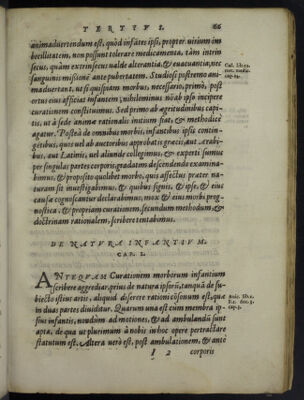 TERTIVS. 66
animaduertendum est, quòd infātes ipsi, propter virium im
becillitatem, non possunt tolerare medicamenta, tàm intrin
secus, quàm extrinsecus ualde alterantia, & euacuantia, nec
sanguinis missionē ante pubertatem. Studiosi postremo ani
maduertant, ut si quispiam morbus, necessario, primò, post
ortus eius afficiat infantem, nihilominus nō ab ipso incipere
curationem consueuimus. Sed primò ab ægritudinibus capi-
tis, ut à sede animæ rationalis initium fiat, & methodicè
agatur. Posteà de omnibus morbis, infantibus ipsis contin-
gētibus, quos uel ab auctoribus approbatis græcis, aut Arabi-
bus, aut Latinis, uel aliunde collegimus, & experti sumus
per singulas partes corporis, gradatim descendendo examina-
bimus, & proposito quolibet morbo, quis affectus præter na-
turam sit inuestigabimus, & quibus signis, & ipse, & eius
causa cognoscantur declarabimus, mox & eius morbi prog-
nostica, & propriam curationem, secundum methodum, &
doctrinam rationalem, scribere tentabimus.
DE NATVRA INFANTIVM.
CAP. I.
ANTEQVAM Curationem morborum infantium
scribere aggrediar, prius de natura ipsorū, tanquā de su-
biecto istius artis, aliquid disserere rationi cōsonum est, quæ
in duas partes diuiditur. Quarum una est cùm membra ip-
sius infantis, nondùm ad motiones, & ad ambulandū sunt
apta, de qua ut plurimùm à nobis in hoc opere pertractāre
statutum est. Altera uerò est, post ambulationem, & ante
I 2 corporis